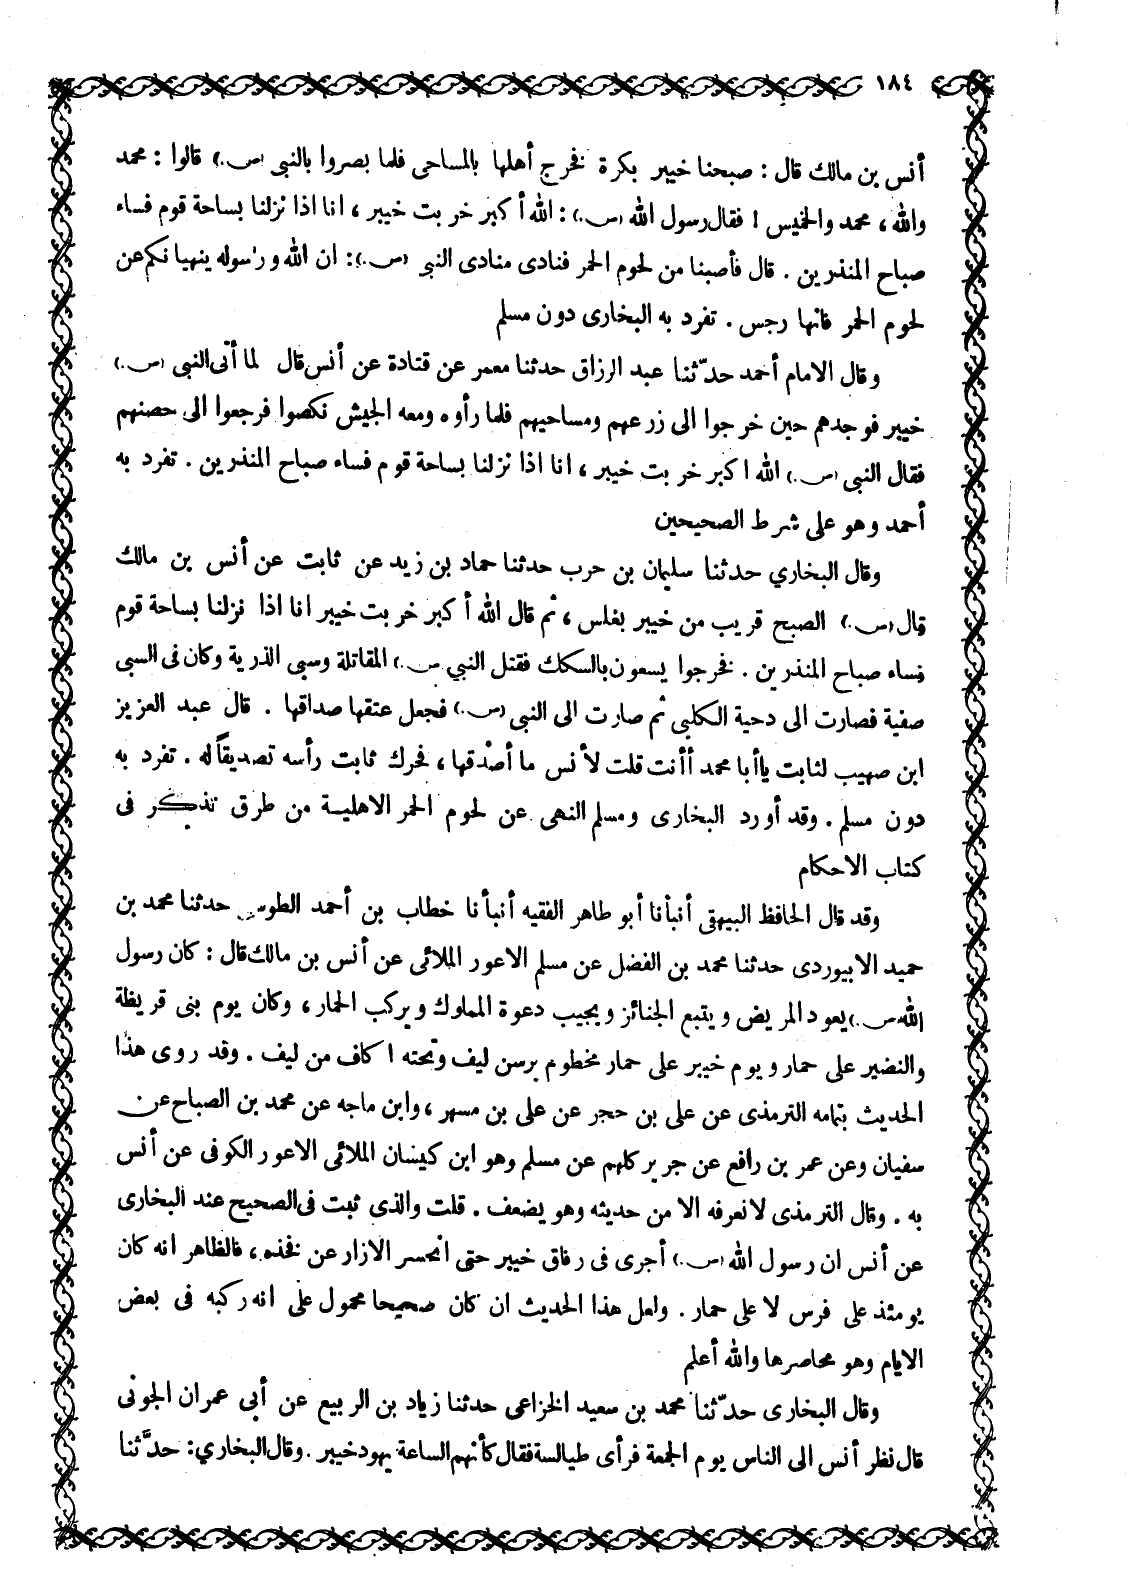 ١٨٤
أنس بن مالك قال : صبحنا خيبر بكرة فخرج أهلها بالمساحى فلما بصروا بالنبى (س.) قالوا : محمد
والله ، محمد والخميس ! فقال رسول الله (س.) : الله أكبر خربت خيبر ، انا اذا نزلنا بساحة قوم فساء
صباح المنذرين . قال فأصبنا من لحوم الحمر فنادى منادى النبى (س.) : ان الله ورسوله ينهيانكم عن
لحوم الحمر فانها رجس . تفرد به البخارى دون مسلم
وقال الامام أحمد حدّثنا عبد الرزاق حدثنا معمر عن قتادة عن أنس قال لما أتى النبى (س.)
خيبر فوجدهم حين خرجوا الى زرعهم ومساحيهم فلما رأوه ومعه الجيش نكصوا فرجعوا الى حصنهم
فقال النبى (س.) الله اكبر خربت خيبر ، انا اذا نزلنا بساحة قوم فساء صباح المنذرين . تفرد به
أحمد وهو على شرط الصحيحين
وقال البخاري حدثنا سليمان بن حرب حدثنا حماد بن زيد عن ثابت عن أنس بن مالك
قال (س.) الصبح قريب من خيبر بغلس ، ثم قال الله أكبر خربت خيبر انا اذا نزلنا بساحة قوم
فساء صباح المنذرين . فخرجوا يسعون بالسكك فقتل النبي س.) المقاتلة وسبى الذرية وكان فى السبى
صفية فصارت الى دحية الكلبي ثم صارت الى النبى (س.) فجعل عتقها صداقها . قال عبد العزيز
ابن صهيب لثابت ياأبا محمد أأنت قلت لأنس ما أصدقها ، فحرك ثابت رأسه تصديقاً له . تفرد به
دون مسلم . وقد أورد البخارى ومسلم النهى عن لحوم الحمر الاهلية من طرق تذكر فى
كتاب الاحكام
وقد قال الحافظ البيهقى أنبأنا أبو طاهر الفقيه أنبأنا خطاب بن أحمد الطوسى حدثنا محمد بن
حميد الابيوردى حدثنا محمد بن الفضل عن مسلم الاعور الملائى عن أنس بن مالك قال : كان رسول
الله س.) يعود المريض ويتبع الجنائز ويجيب دعوة المملوك ويركب الحمار ، وكان يوم بنى قريظة
والنضير على حمار ويوم خيبر على حمار مخطوم برسن ليف وتحته اكاف من ليف . وقد روى هذا
الحديث بتمامه الترمذى عن على بن حجر عن على بن مسهر ، وابن ماجه عن محمد بن الصباح عن
سفيان وعن عمر بن رافع عن جرير كلهم عن مسلم وهو ابن كيسان الملائى الاعور الكوفى عن أنس
به . وقال الترمذى لا نعرفه الا من حديثه وهو يضعف . قلت والذى ثبت فى الصحيح عند البخارى
عن أنس ان رسول الله (س.) أجرى فى رفاق خيبر حتى انحسر الازار عن فخذه ، فالظاهر انه كان
يومئذ على فرس لا على حمار . ولعل هذا الحديث ان كان صحيحا محمول على انه ركبه فى بعض
الايام وهو محاصرها والله أعلم
وقال البخارى حدّثنا محمد بن سعيد الخزاعى حدثنا زياد بن الربيع عن أبى عمران الجونى
قال نظر أنس الى الناس يوم الجمعة فرأى طيالسة فقال كأنهم الساعة يهود خيبر . وقال البخاري : حدَّثنا